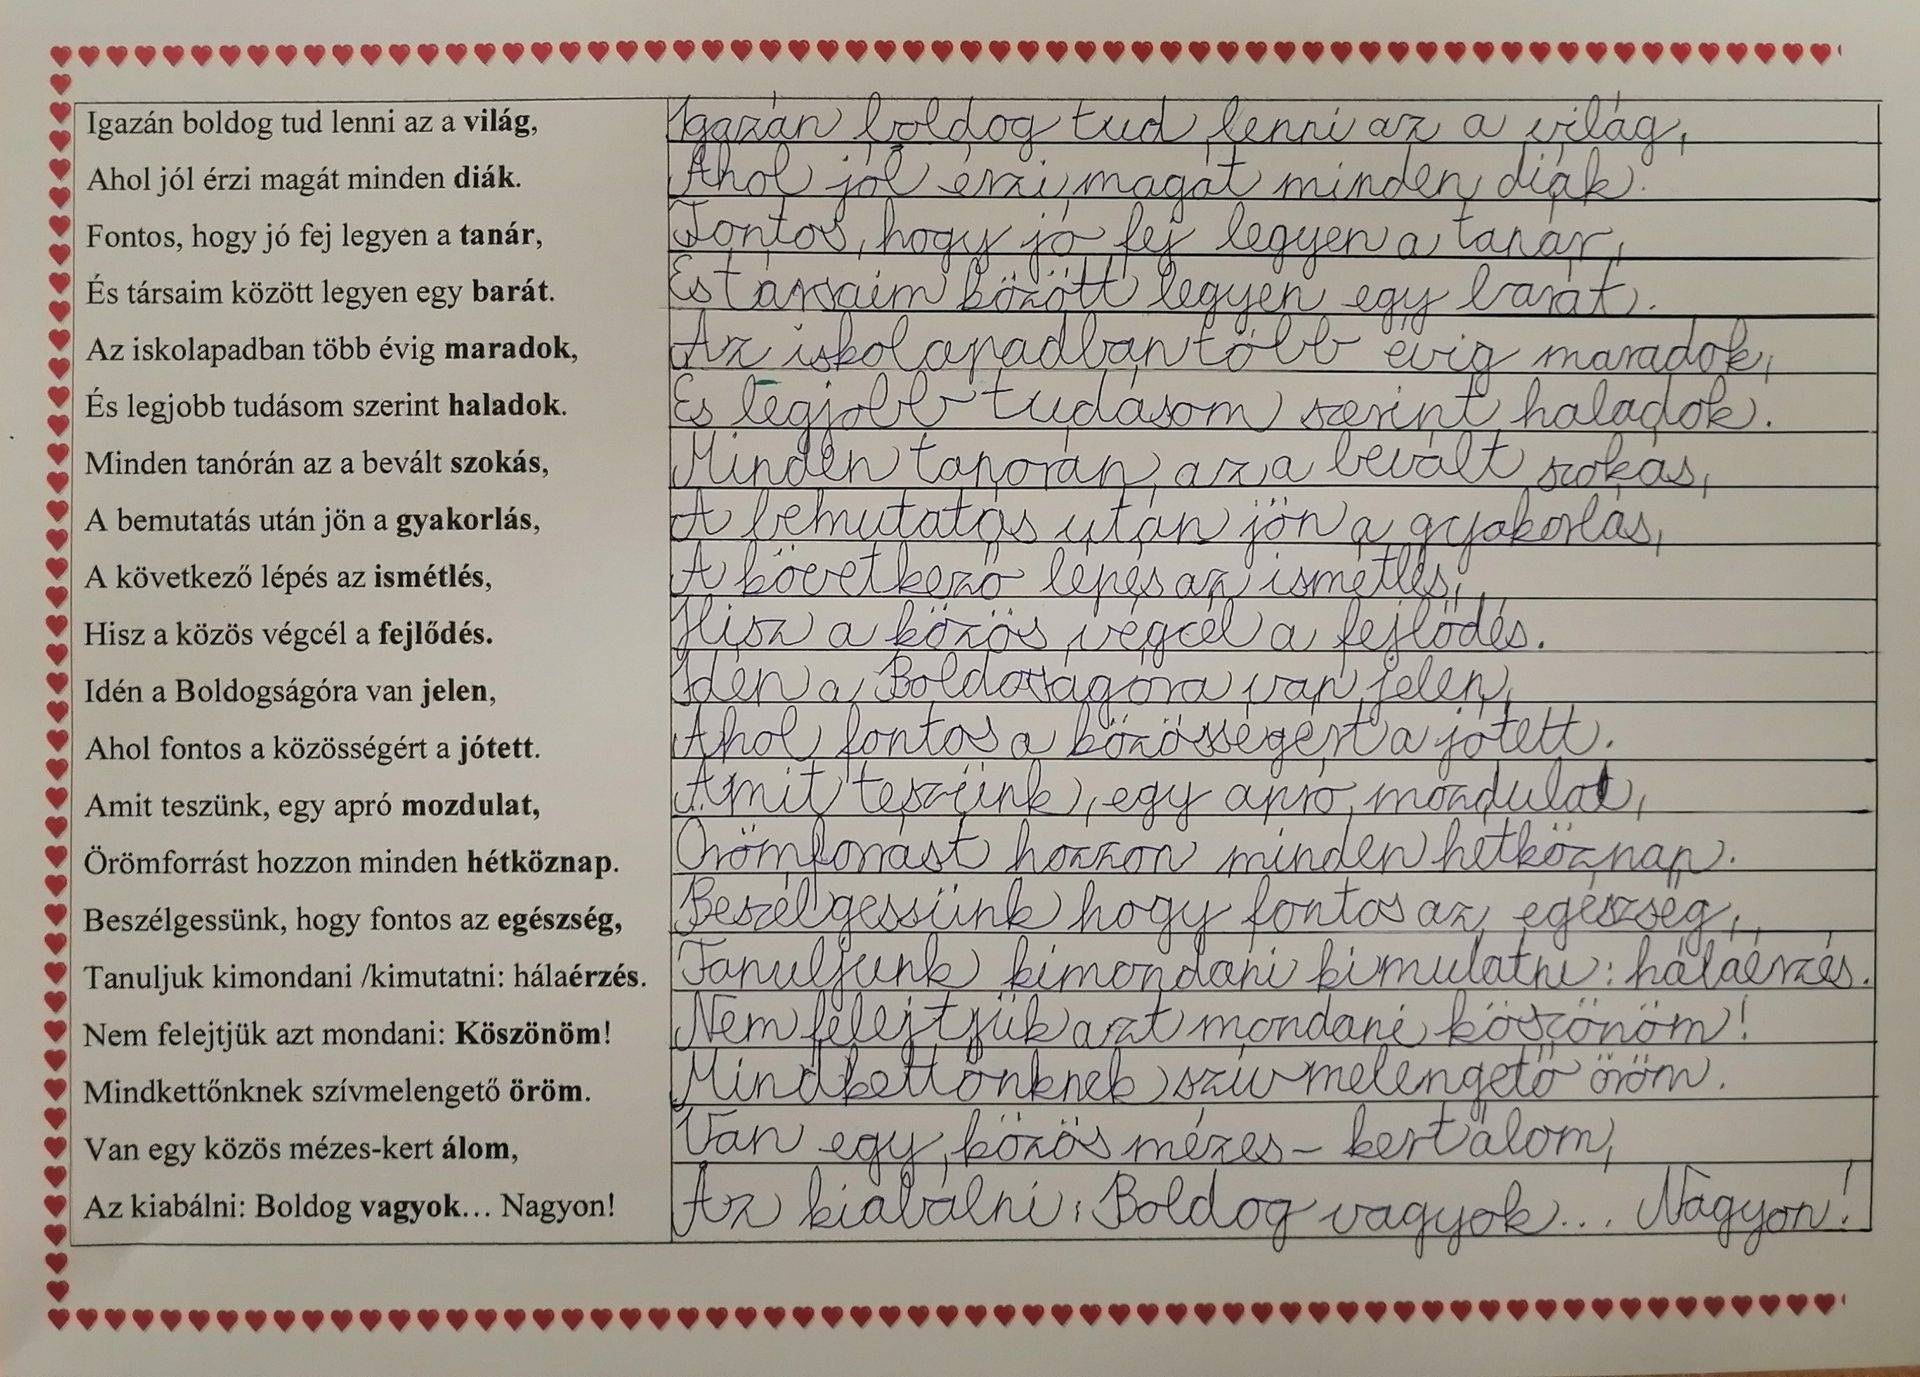 Igazán boldog tud lenni az a világ,
Igazán boldog tud lenni az a világ,
Ahol jól érzi magát minden diák.
Ahol jól érzi magát minden diák.
Fontos, hogy jó fej legyen a tanár,
Fontos, hogy jó fej legyen a tanár,
És társaim között legyen egy barát.
És társaim között legyen egy barát.
Az iskolapadban több évig maradok,
Az iskolapadban több évig maradok,
És legjobb tudásom szerint haladok.
És legjobb tudásom szerint haladok.
Minden tanórán az a bevált szokás,
Minden tanórán az a bevált szokás,
A bemutatás után jön a gyakorlás,
A bemutatás után jön a gyakorlás,
A következő lépés az ismétlés,
A következő lépés az ismétlés,
Hisz a közös végcél a fejlődés.
Hisz a közös végcél a fejlődés.
Idén a Boldogságóra van jelen,
Idén a Boldogságóra van jelen,
Ahol fontos a közösségért a jótett.
Ahol fontos a közösségért a jótett.
Amit teszünk, egy apró mozdulat,
Amit teszünk, egy apró mozdulat,
Örömforrást hozzon minden hétköznap.
Örömforrást hozzon minden hétköznap.
Beszélgessünk, hogy fontos az egészség,
Beszélgessünk hogy fontos az egészség,
Tanuljuk kimondani /kimutatni: hálaérzés.
Tanuljunk kimondani kimulatni: hálaérzés.
Nem felejtjük azt mondani: Köszönöm!
Nem felejtjük azt mondani köszönöm!
Mindkettőnknek szívmelengető öröm.
Mindkettőnknek szívmelengető öröm.
Van egy közös mézes-kert álom,
Van egy közös mézes-kert álom,
Az kiabálni: Boldog vagyok… Nagyon!
Az kiabálni: Boldog vagyok... Nagyon!